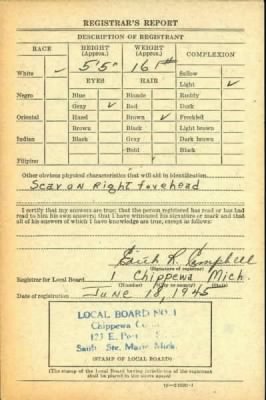 REGISTRAR'S REPORT
DESCRIPTION OF REGISTRANT
RACE HEIGHT (Approx.) WEIGHT (Approx.) COMPLEXION
5'5" 161#
White ✓ Sallow
EYES HAIR Light ✓
Negro Blue Blonde Ruddy
Gray ✓ Red Dark
Oriental Hazel Brown ✓ Freckled
Brown Black Light brown
Indian Black Gray Dark brown
Bald Black
Filipino
Other obvious physical characteristics that will aid in identification
Scar on Right forehead
I certify that my answers are true; that the person registered has read or has had
read to him his own answers; that I have witnessed his signature or mark and that
all of his answers of which I have knowledge are true, except as follows:
Edith R. Campbell
(Signature of registrar)
Registrar for Local Board 1 Chippewa Mich.
(Number) (City or county) (State)
Date of registration June 18, 1945
LOCAL BOARD NO. 1
Chippewa
123 E.
Sault Ste. Marie, Mich.
(STAMP OF LOCAL BOARD)
(The stamp of the Local Board having jurisdiction of the registrant
shall be placed in the above space)